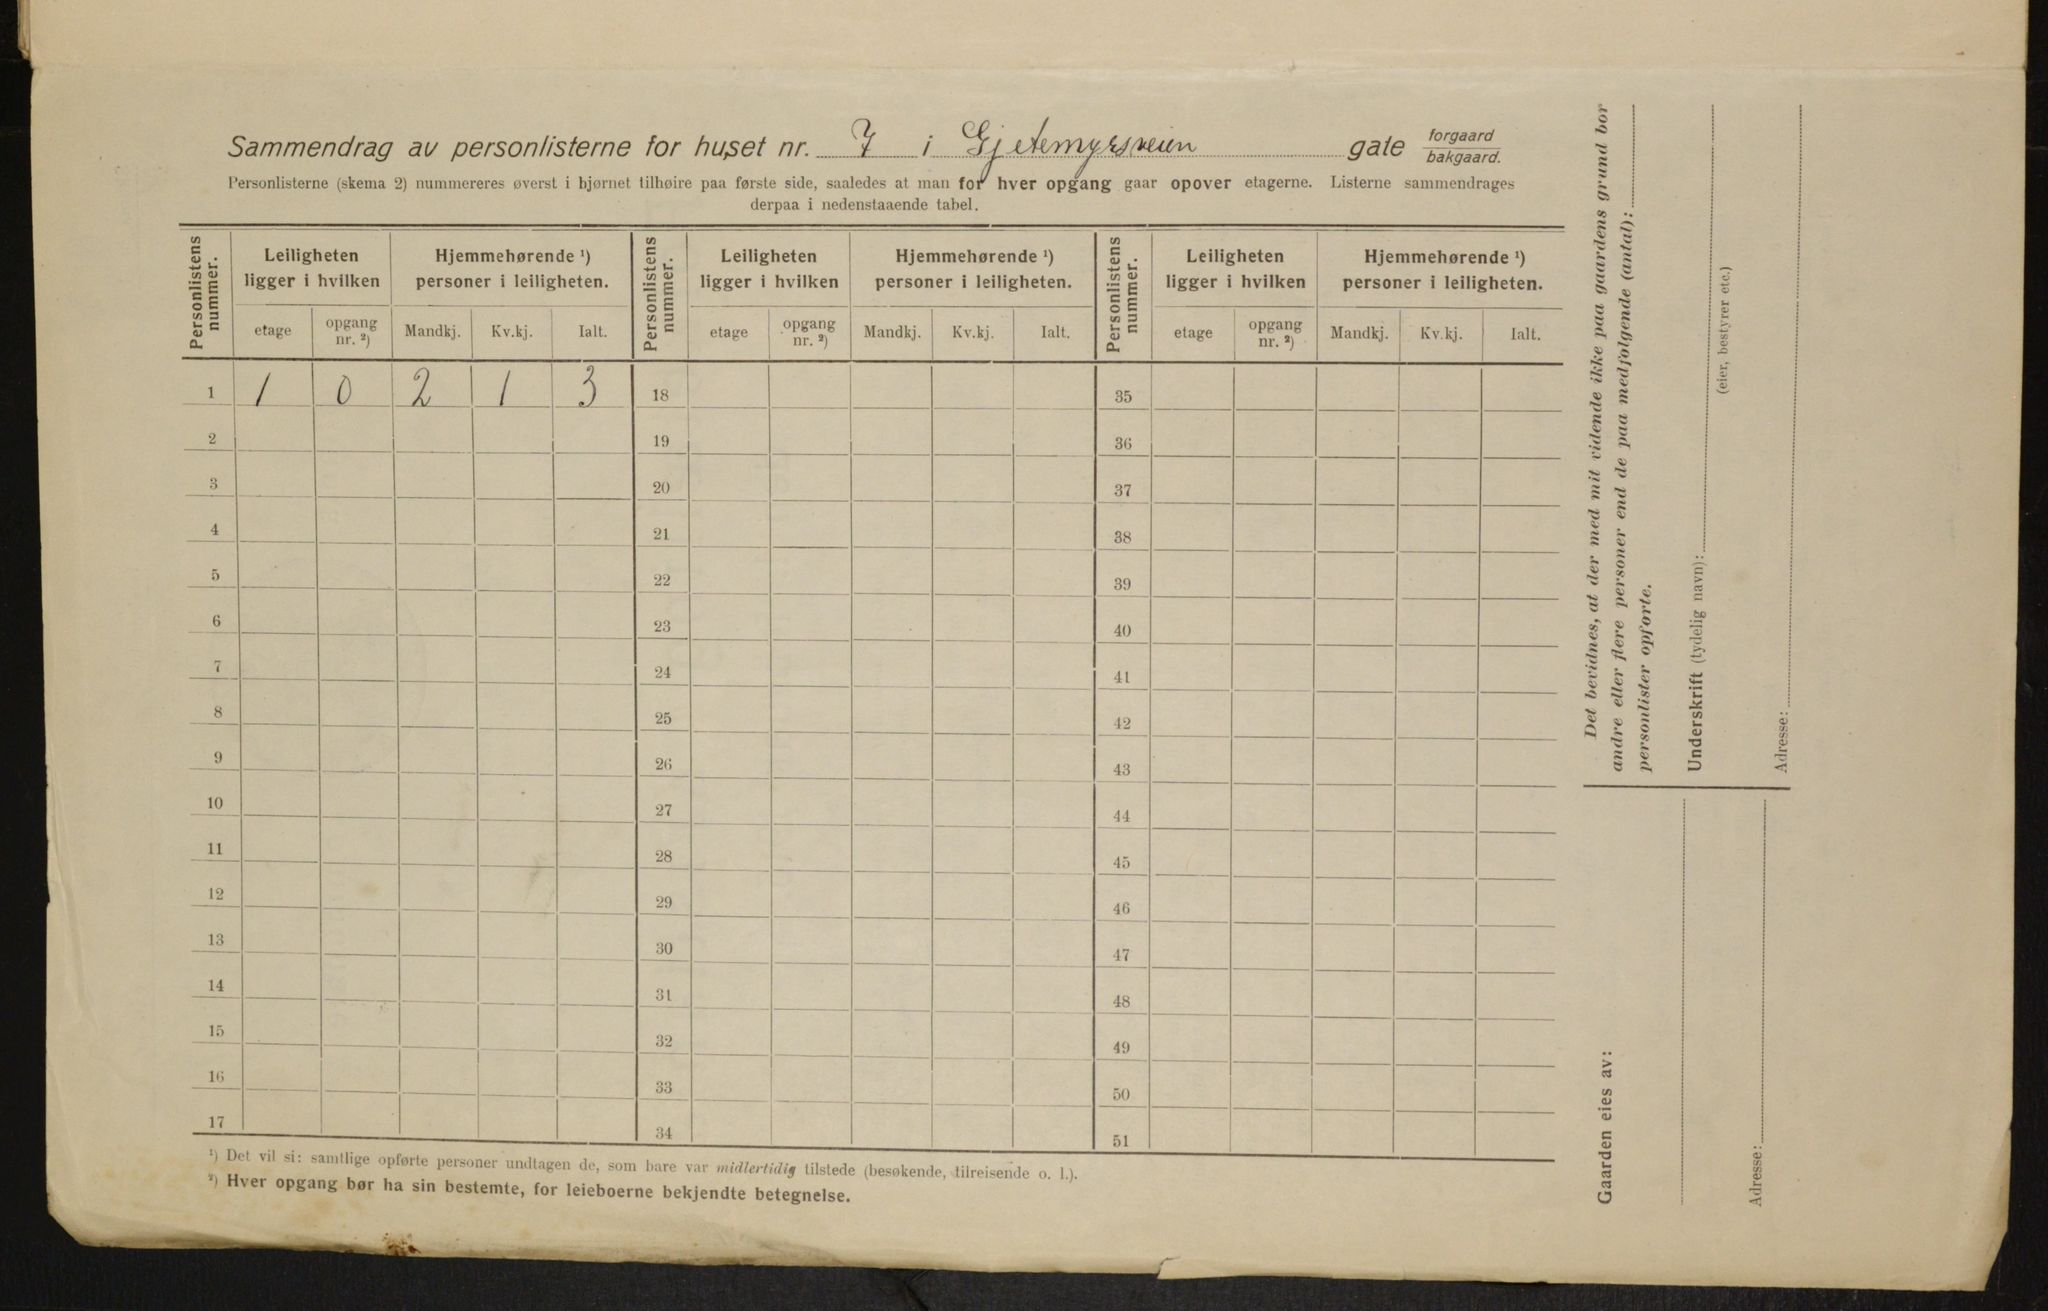 Sammendrag av personlisterne for huset nr. 7 i Gjetemyrsveien gate forgaard
bakgaard.
Personlisterne (skema 2) nummereres øverst i hjørnet tilhøire paa første side, saaledes at man for hver opgang gaar opover etagerne. Listerne sammendrages
derpaa i nedenstaaende tabel.
Personlistens nummer. Leiligheten ligger i hvilken Hjemmehørende ¹) personer i leiligheten. Personlistens nummer. Leiligheten ligger i hvilken Hjemmehørende ¹) personer i leiligheten. Personlistens nummer. Leiligheten ligger i hvilken Hjemmehørende ¹) personer i leiligheten.
etage opgang nr. ²) Mandkj. Kv.kj. Ialt. etage opgang nr. ²) Mandkj. Kv.kj. Ialt. etage opgang nr. ²) Mandkj. Kv.kj. Ialt.
1 1 0 2 1 3 18 35
2 19 36
3 20 37
4 21 38
5 22 39
6 23 40
7 24 41
8 25 42
9 26 43
10 27 44
11 28 45
12 29 46
13 30 47
14 31 48
15 32 49
16 33 50
17 34 51
¹) Det vil si: samtlige opførte personer undtagen de, som bare var midlertidig tilstede (besøkende, tilreisende o. l.).
²) Hver opgang bør ha sin bestemte, for leieboerne bekjendte betegnelse.
Det bevidnes, at der med mit vidende ikke paa gaardens grund bor
andre eller flere personer end de paa medfølgende (antal):
personlister opførte.
Underskrift (tydelig navn):
(eier, bestyrer etc.)
Adresse:
Gaarden eies av:
Adresse: